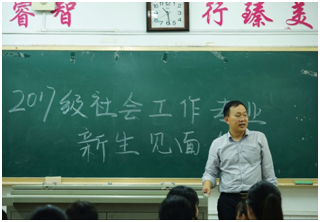 睿智
行臻美
2017级社会工作专业
新生见面